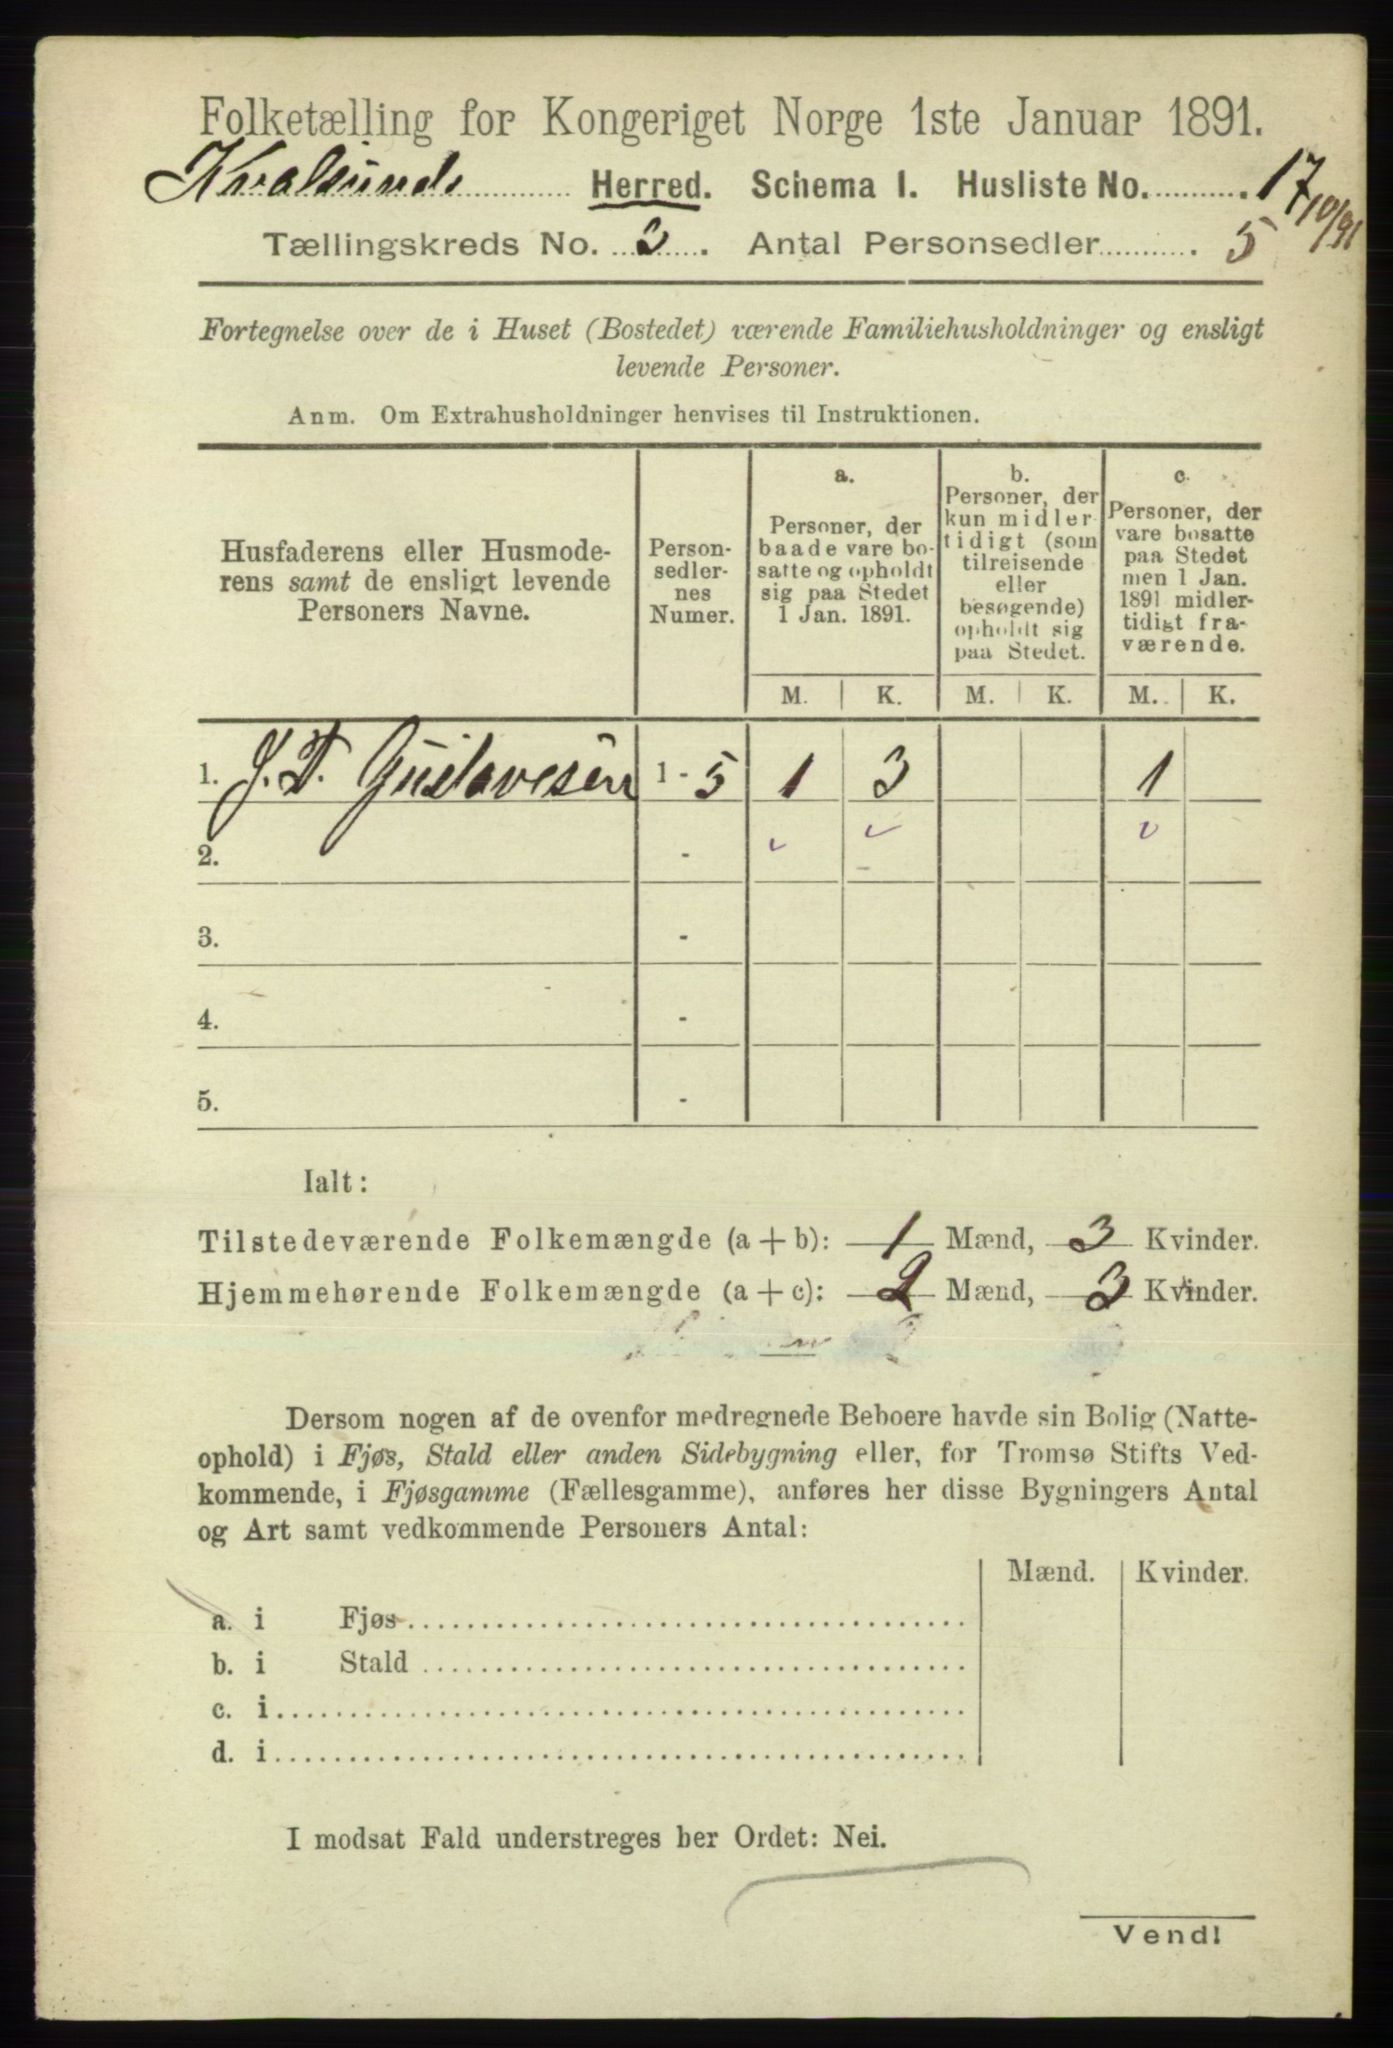 Folketælling for Kongeriget Norge 1ste Januar 1891.
Kvalsunds Herred. Schema I. Husliste No. 17
10/91
Tællingskreds No. 2. Antal Personsedler 5
Fortegnelse over de i Huset (Bostedet) værende Familiehusholdninger og ensligt
levende Personer.
Anm. Om Extrahusholdninger henvises til Instruktionen.
Husfaderens eller Husmode-
rens samt de ensligt levende
Personers Navne.
Person-
sedler-
nes
Numer.
a.
Personer, der
baade vare bo-
satte og opholdt
sig paa Stedet
1 Jan. 1891.
b.
Personer, der
kun midler-
tidigt (som
tilreisende
eller
besøgende)
opholdt sig
paa Stedet.
c.
Personer, der
vare bosatte
paa Stedet
men 1 Jan.
1891 midler-
tidigt fra-
værende.
M. K. M. K. M. K.
1. J. T. Gustavesen 1 - 5 1 3 1
2. -
3. -
4. -
5. -
Ialt:
Tilstedeværende Folkemængde (a + b): 1 Mænd, 3 Kvinder.
Hjemmehørende Folkemængde (a + c): 2 Mænd, 3 Kvinder.
Dersom nogen af de ovenfor medregnede Beboere havde sin Bolig (Natte-
ophold) i Fjøs, Stald eller anden Sidebygning eller, for Tromsø Stifts Ved-
kommende, i Fjøsgamme (Fællesgamme), anføres her disse Bygningers Antal
og Art samt vedkommende Personers Antal:
Mænd. Kvinder.
a. i Fjøs
b. i Stald
c. i
d. i
I modsat Fald understreges her Ordet: Nei.
Vend!